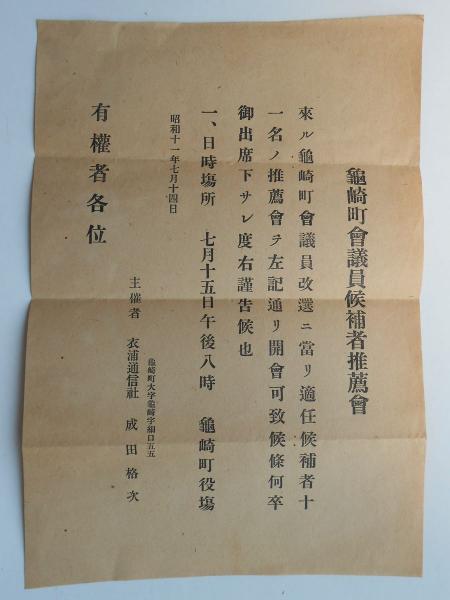 龜崎町會議員候補者推薦會
來ル龜崎町會議員改選ニ當リ適任候補者十
一名ノ推薦會ヲ左記通リ開會可致候條何卒
御出席下サレ度右謹告候也
一、日時場所　七月十五日午後八時　龜崎町役場
昭和十一年七月十四日
有權者各位
龜崎町大字龜崎字細口五五
主催者　衣浦通信社　成田格次